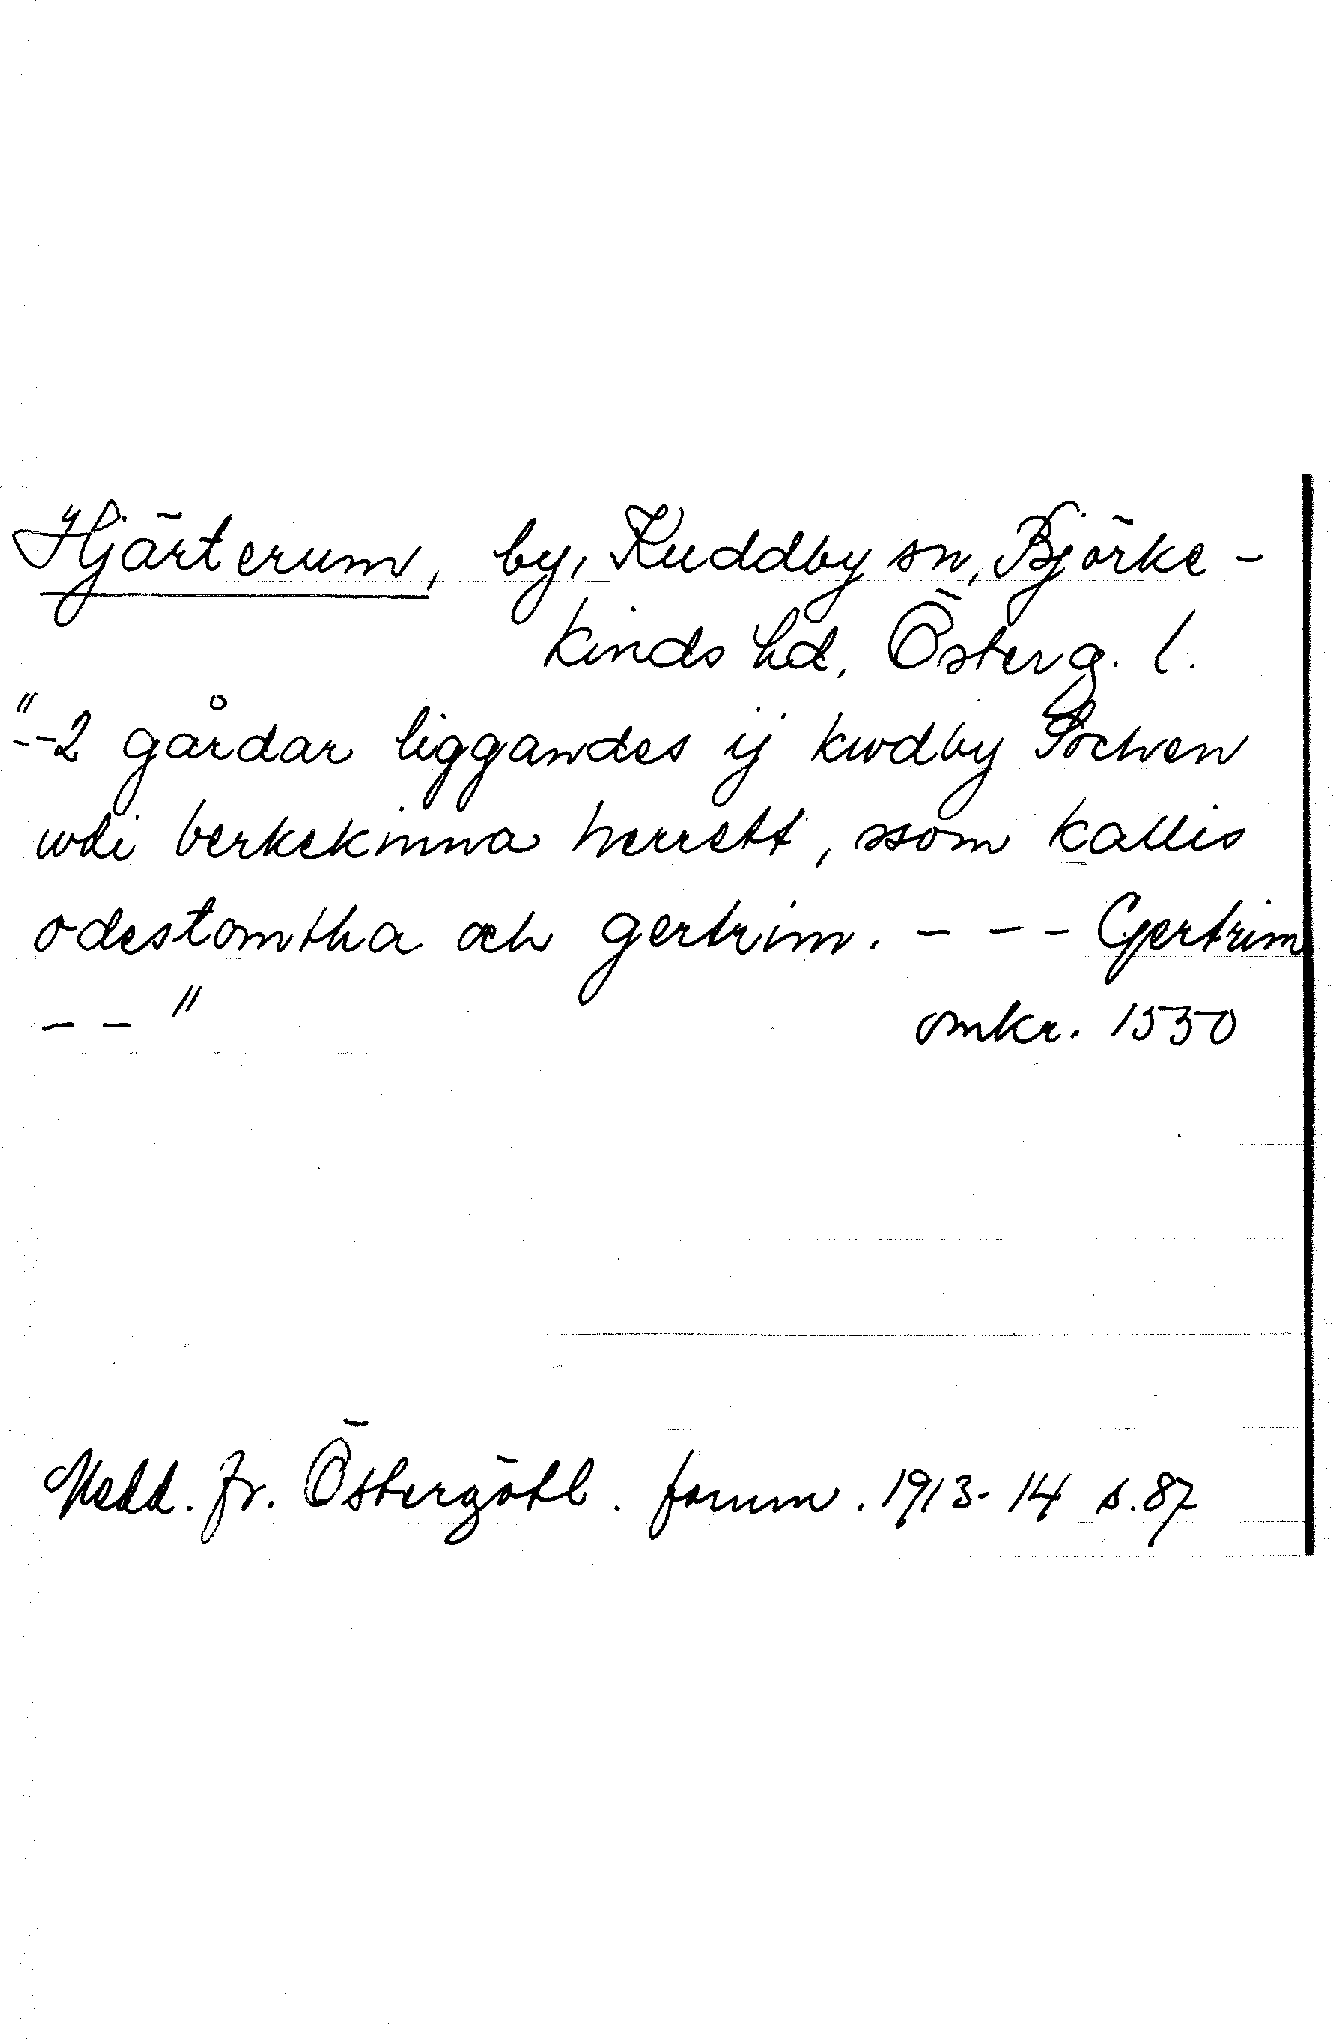 Hjärterum, by, Kuddby sn, Björke-
kinds hd, Österg. l.
"--2 gårdar liggandes ij kwdby Sochen
wdi berkekinna herrett, ssom kallis
odestomtha och gertrim. --- Gertrim
--"  omkr. 1550
Medd. fr. Östergötl. fornm. 1913-14 s.87